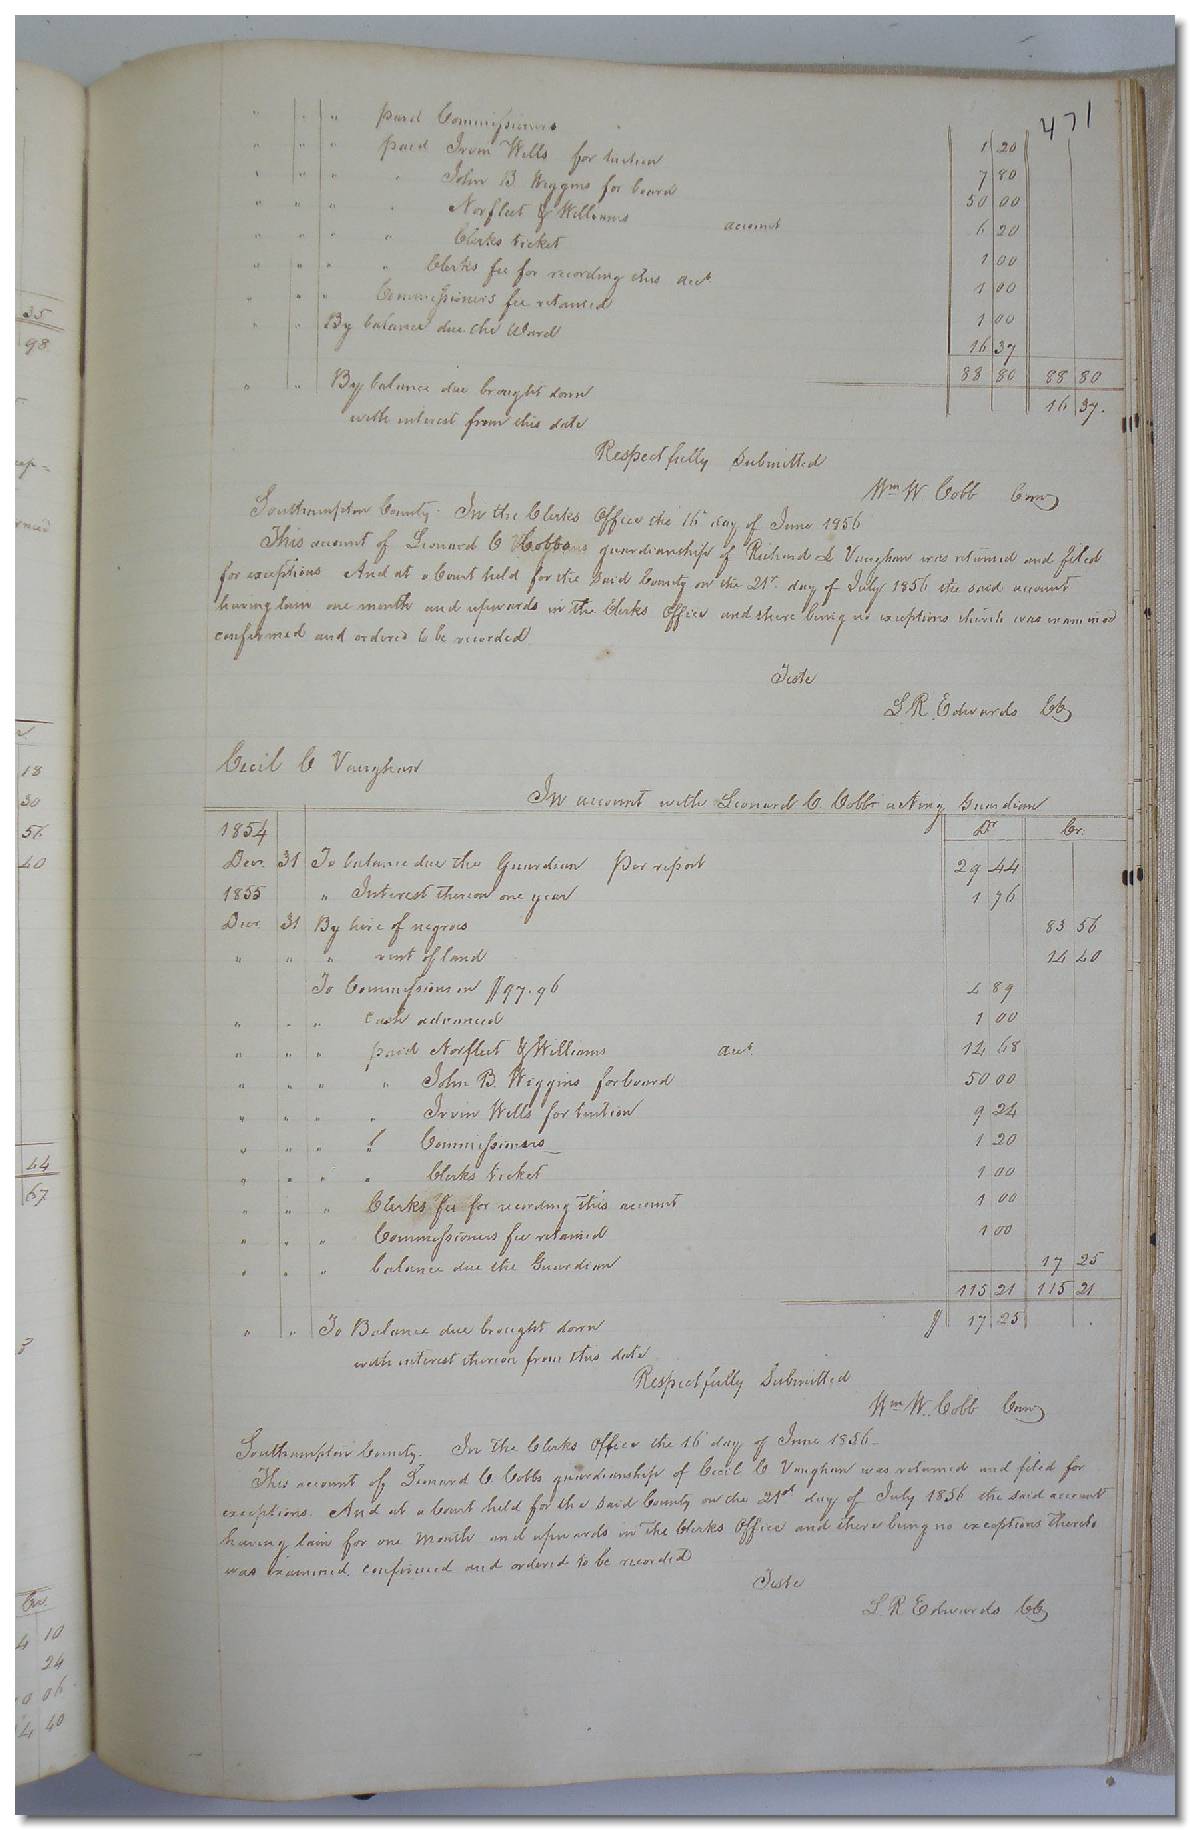 471
" " " paid Commissioners 1 20
" " " paid Irvin Wells for tuition 7 80
" " " " John B. Wiggins for board 50 00
" " " " Norfleet & Williams account 6 20
" " " " Clerks ticket 1 00
" " " " Clerks fee for recording this acct 1 00
" " " Commissioners fee retained 1 00
" " By balance due the Ward 16 37
88 80 88 80
" " By balance due brought down 16 37.
with interest from this date
Respectfully Submitted
Wm W Cobb Comr
Southampton County. In the Clerks Office the 16 day of June 1856
This account of Leonard C Cobbs guardianship of Richard L Vaughan was returned and filed
for exceptions And at a Court held for the said County on the 21st. day of July 1856 the said account
having lain one month and upwards in the Clerks Office and there being no exceptions thereto was examined
confirmed and ordered to be recorded
Teste
L R. Edwards CC
Cecil C Vaughan
In account with Leonard C. Cobb acting Guardian
1854 Dr Cr.
Decr. 31 To balance due the Guardian Per report 29 44
1855 " Interest thereon one year 1 76
Decr. 31 By hire of negroes 83 56
" " " rent of land 14 40
To Commissions on $97.96 4 89
" " " Cash advanced 1 00
" " " paid Norfleet & Williams acct. 14 68
" " " " John B. Wiggins for board 50 00
" " " " Irvin Wells for tuition 9 24
" " " " Commissioners 1 20
" " " " Clerks ticket 1 00
" " " Clerks fee for recording this account 1 00
" " " Commissioners fee retained 1 00
" " " balance due the Guardian 17 25
115 21 115 21
" " To Balance due brought down $ 17 25
with interest thereon from this date
Respectfully Submitted
Wm W. Cobb Comr
Southampton County. In the Clerks Office the 16 day of June 1856.
This account of Leonard C. Cobbs guardianship of Cecil C Vaughan was returned and filed for
exceptions. And at a Court held for the said County on the 21st day of July 1856 the said account
having lain for one month and upwards in the Clerks Office and there being no exceptions thereto
was examined, confirmed and ordered to be recorded
Teste
L R Edwards CC
35
98
18
30
56
40
44
67
Cr.
4 10
24
06
4 40